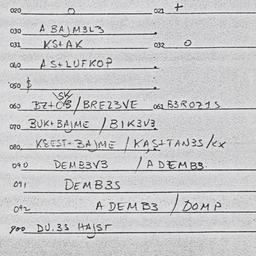 020 0 021 +
030 A BAJM3L3
031 KS+AK 032 0
040 AS+LUFKOP
050 $
060 BZ+CB/BRE23VE 061 B3R071S
070 BUK+BAJME/BIK3V3
080 KBEST-BAJME/KAS+TAN3S/KX
090 DEMB3V3 /ADEMB3
091 DEMB3S
092 A DEMB3 /DOMP
900 DU.3S HAJST